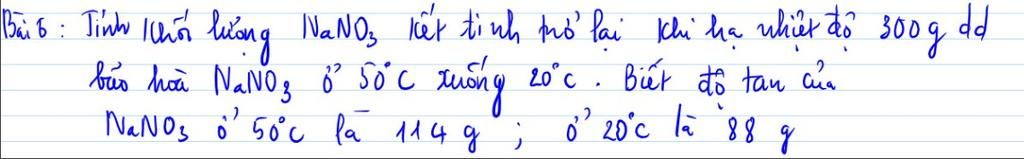 Bài 6 : Tính khối lượng NaNO₃ kết tinh trở lại khi hạ nhiệt độ 300 g dd
bão hoà NaNO₃ ở 50°C xuống 20°C . Biết độ tan của
NaNO₃ ở 50°C là 114 g ; ở 20°C là 88 g